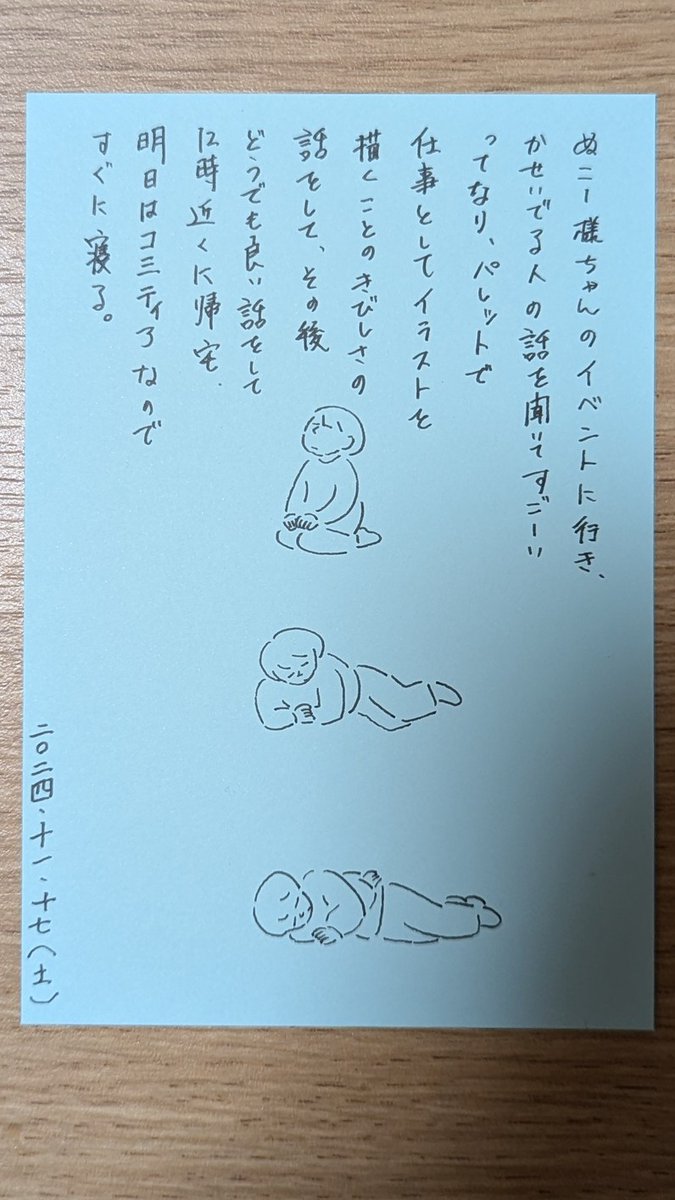 ぬこー様ちゃんのイベントに行き、
かせいでる人の話を聞いてすごーい
ってなり、パレットで
仕事としてイラストを
描くことのきびしさの
話をして、その後
どうでも良い話をして
12時近くに帰宅、
明日はコミティアなので
すぐに寝る。
二〇二四、十一、十七(土)